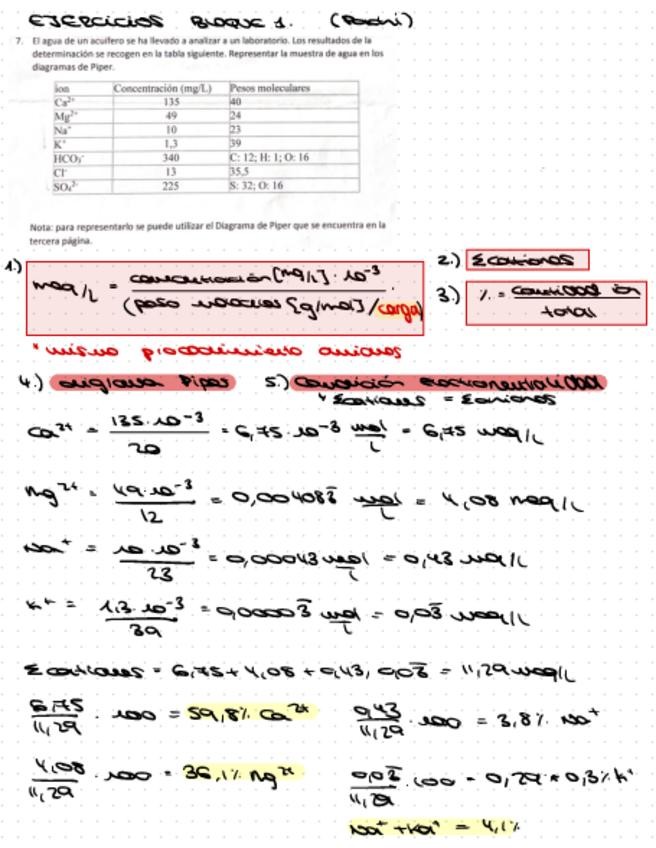 EJERCICIOS BLOQUE 1. (Padri)
7. El agua de un acuífero se ha llevado a analizar a un laboratorio. Los resultados de la
determinación se recogen en la tabla siguiente. Representar la muestra de agua en los
diagramas de Piper.
ion Concentración (mg/L) Pesos moleculares
Ca²⁺ 135 40
Mg²⁺ 49 24
Na⁺ 10 23
K⁺ 1,3 39
HCO₃⁻ 340 C: 12; H: 1; O: 16
Cl⁻ 13 35,5
SO₄²⁻ 225 S: 32; O: 16
Nota: para representarlo se puede utilizar el Diagrama de Piper que se encuentra en la
tercera página.
1.) meq/L = concentración [mg/L] · 10⁻³ / (peso molecular [g/mol]/carga)
2.) Σcationes
3.) % = cantidad ion / total
* mismo procedimiento aniones
4.) diagrama Piper 5.) Condición electroneutralidad
Σcationes = Σaniones
Ca²⁺ = 135·10⁻³ / 20 = 6,75·10⁻³ mol/L = 6,75 meq/L
Mg²⁺ = 49·10⁻³ / 12 = 0,00408 mol/L = 4,08 meq/L
Na⁺ = 10·10⁻³ / 23 = 0,00043 mol/L = 0,43 meq/L
K⁺ = 1,3·10⁻³ / 39 = 0,00003 mol/L = 0,03 meq/L
Σcationes = 6,75 + 4,08 + 0,43, 0,03 = 11,29 meq/L
6,75 / 11,29 · 100 = 59,8% Ca²⁺ 0,43 / 11,29 · 100 = 3,8% Na⁺
4,08 / 11,29 · 100 = 36,1% Mg²⁺ 0,03 / 11,29 · 100 = 0,29 ≈ 0,3% K⁺
Na⁺ + K⁺ = 4,1%